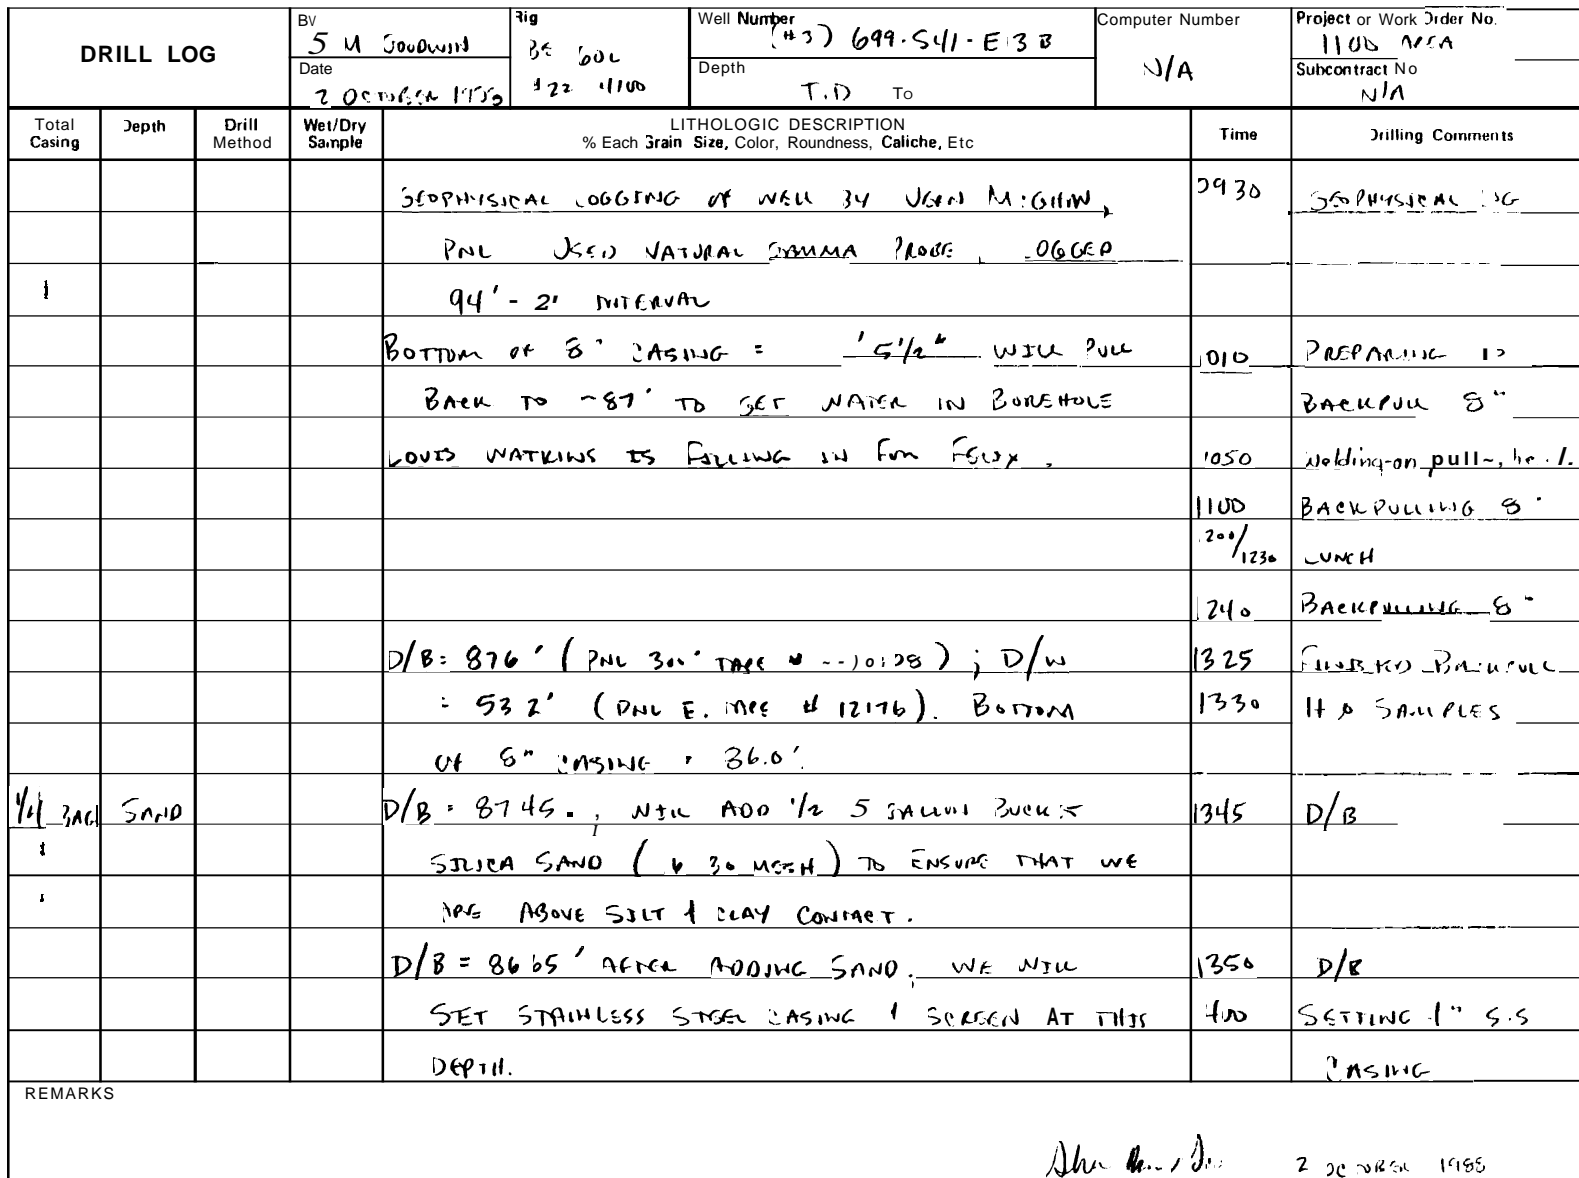 DRILL LOG
By
S M GOODWIN
Date
2 OCTOBER
Rig
BE 60L
#22 4100
Well Number
(#3) 699-S41-E13B
Depth
T.D To
Computer Number
N/A
Project or Work Order No.
1100 AREA
Subcontract No
N/A
Total Casing
Depth
Drill Method
Wet/Dry Sample
LITHOLOGIC DESCRIPTION
% Each Grain Size, Color, Roundness, Caliche, Etc
Time
Drilling Comments
GEOPHYSICAL LOGGING OF WELL BY VERN
0930
GEOPHYSICAL LOG
PNL USED NATURAL GAMMA PROBE, LOGGED
94' - 2' INTERVAL
BOTTOM OF 8" CASING = 5 1/2" WILL PULL
1010
PREPARING TO
BACK TO ~87' TO GET WATER IN BOREHOLE
BACKPULL 8"
LOUIS WATKINS IS FILLING IN FOR FELIX.
1050
Welding-on pull
1100
BACKPULLING 8"
1200/1230
LUNCH
1240
BACKPULLING 8"
D/B = 87 6' (PNL 300' TAPE # ); D/W
1325
FINISHED BACKPULL
= 53 2' (PNL E. TAPE # 12176). BOTTOM
1330
SAMPLES
OF 8" CASING = 86.0'
BAG SAND
D/B = 87 45, WILL ADD 1/2 5 GALLON BUCKET
1345
D/B
SILICA SAND ( 30 MESH) TO ENSURE THAT WE
ARE ABOVE SILT & CLAY CONTACT.
D/B = 86 65' AFTER ADDING SAND. WE WILL
1350
D/B
SET STAINLESS STEEL CASING & SCREEN AT THIS
1400
SETTING 4" S.S
DEPTH.
CASING
REMARKS
2 OCTOBER 1988